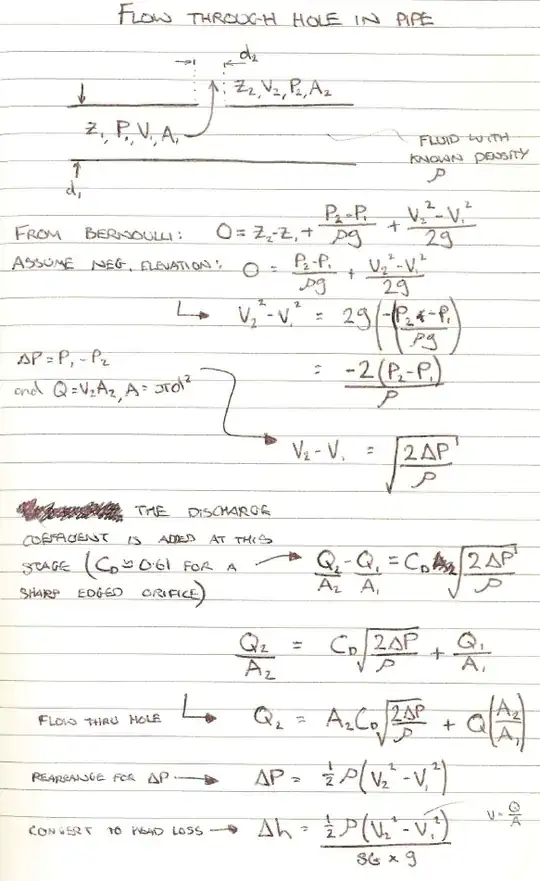 FLOW THROUGH HOLE IN PIPE
d₂
Z₂, V₂, P₂, A₂
Z₁, P₁, V₁, A₁
FLUID WITH
KNOWN DENSITY
ρ
d₁
FROM BERNOULLI: 0 = Z₂-Z₁ + (P₂-P₁)/ρg + (V₂²-V₁²)/2g
ASSUME NEG. ELEVATION: 0 = (P₂-P₁)/ρg + (V₂²-V₁²)/2g
V₂²-V₁² = 2g(-(P₂-P₁)/ρg)
ΔP = P₁ - P₂
and Q = V₂A₂, A = πd²
= -2(P₂-P₁)/ρ
V₂-V₁ = √(2ΔP/ρ)
THE DISCHARGE
COEFFICIENT IS ADDED AT THIS
STAGE (C_D ≃ 0.61 FOR A
SHARP EDGED ORIFICE)
Q₂/A₂ - Q₁/A₁ = C_D √(2ΔP/ρ)
Q₂/A₂ = C_D √(2ΔP/ρ) + Q₁/A₁
FLOW THRU HOLE Q₂ = A₂C_D √(2ΔP/ρ) + Q(A₂/A₁)
REARRANGE FOR ΔP → ΔP = ½ρ(V₂²-V₁²)
CONVERT TO HEAD LOSS → Δh = ½ρ(V₂²-V₁²)/(SG × g)
V = Q/A